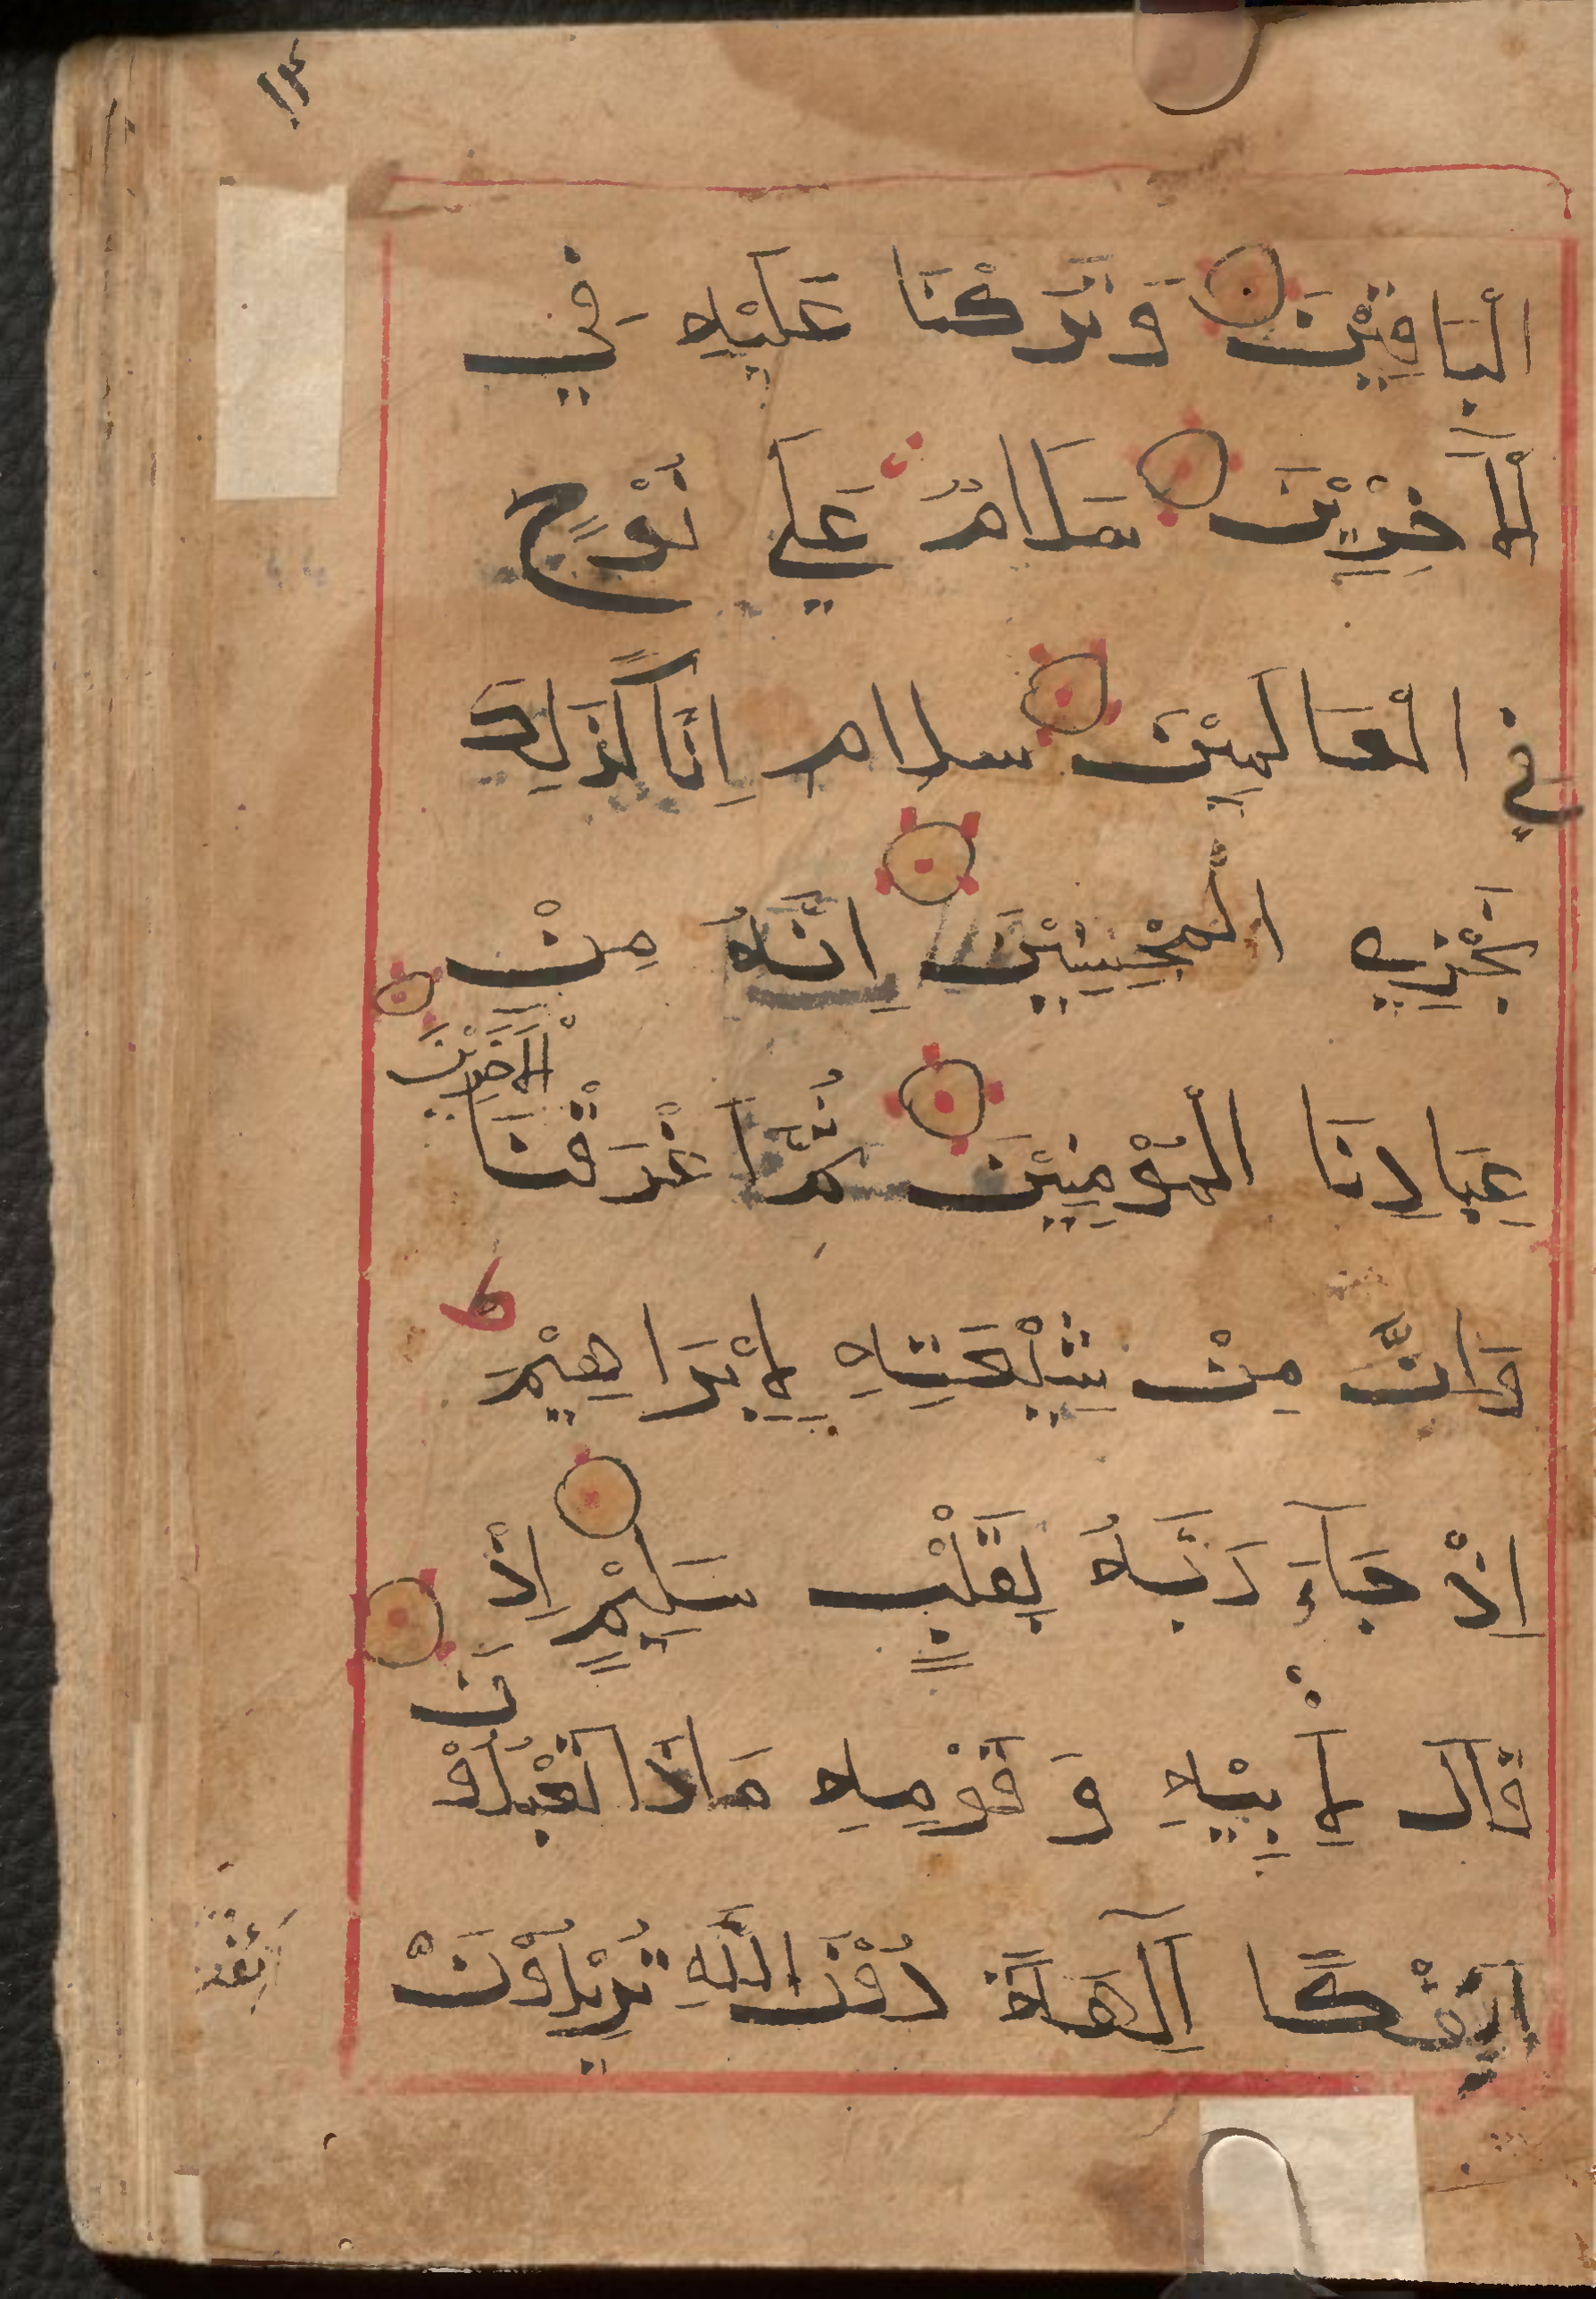 الْبَاقِيْنَ وَتَرَكْنَا عَلَيْهِ فِي
الْآخِرِيْنَ سَلَامٌ عَلَي نُوْحٍ
فِي الْعَالَمِيْنَ سلام اِنَّا كَذَلِكَ
نَجْزِي الْمُحْسِنِيْنَ اِنَّهُ مِنْ
عِبَادِنَا الْمُؤْمِنِيْنَ ثُمَّ اَغْرَقْنَا
الْآخَرِيْنَ
وَاِنَّ مِنْ شِيْعَتِهِ لَإِبْرَاهِيْمَ
اِذْ جَآءَ رَبَّهُ بِقَلْبٍ سَلِيْمٍ اِذْ
قَالَ لِأَبِيْهِ وَقَوْمِهِ مَاذَا تَعْبُدُوْ
نَ
اَئِفْكًا آلِهَةً دُوْنَ اللَّهِ تُرِيْدُوْنَ